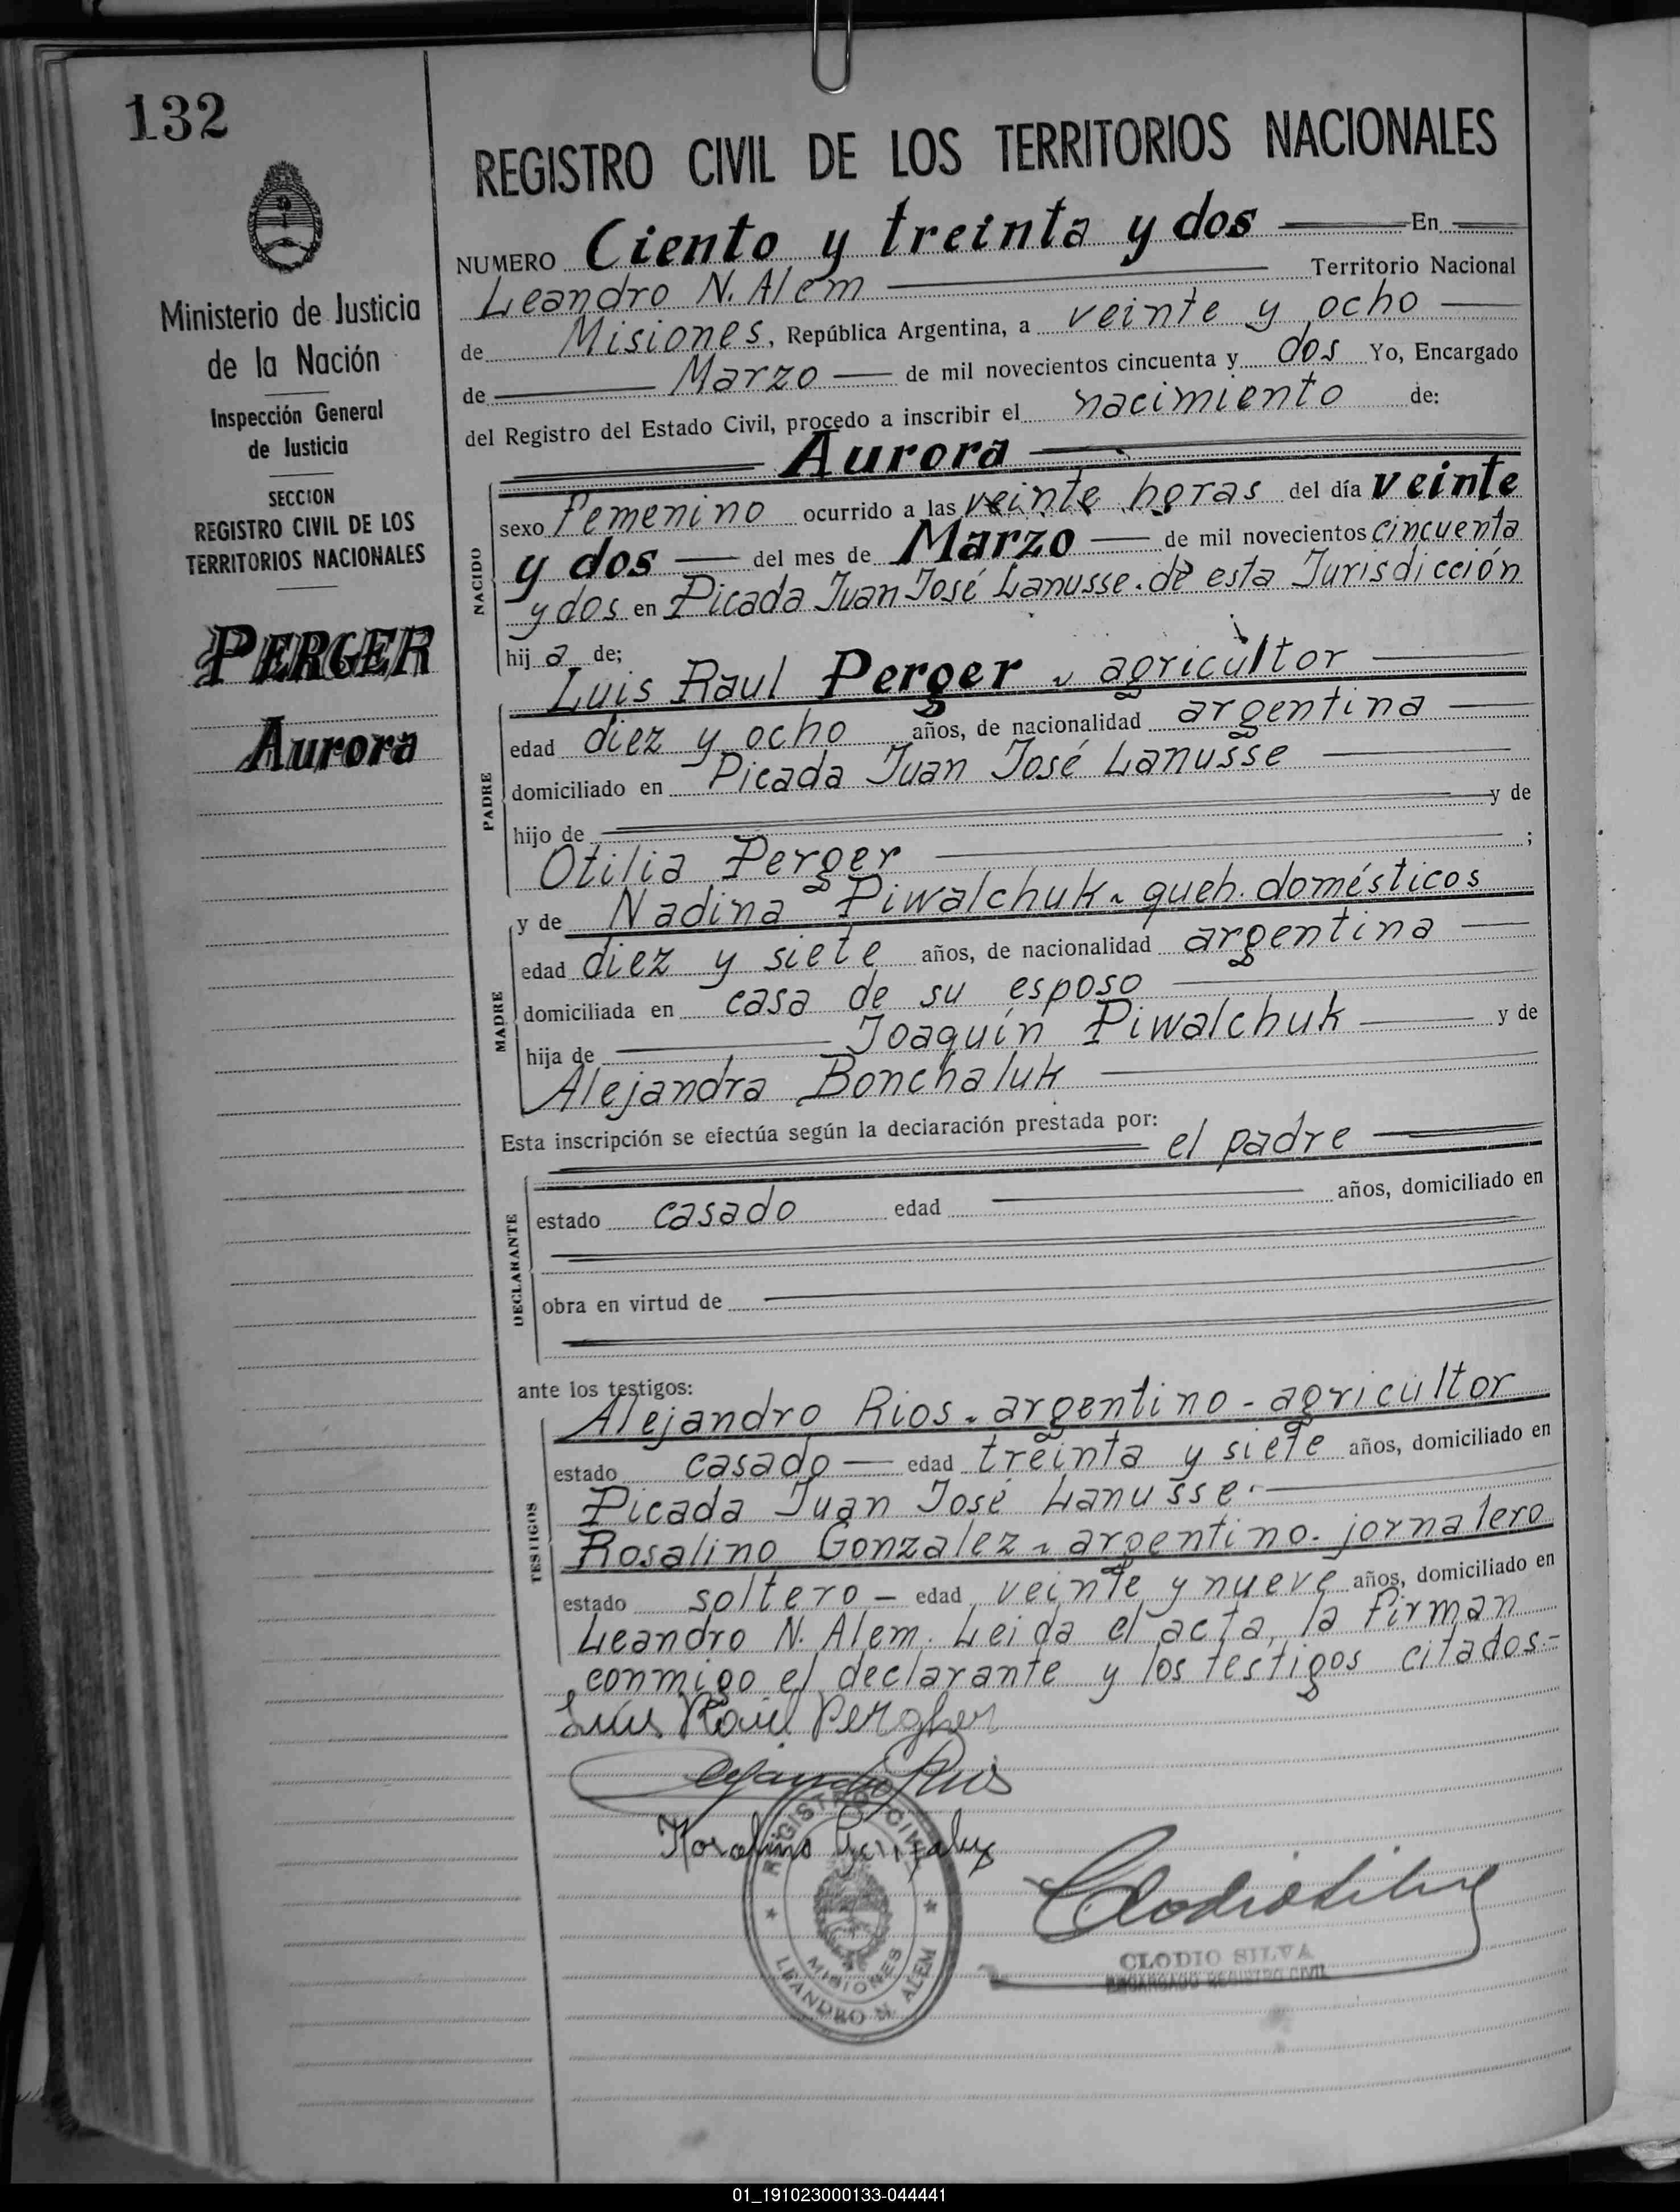 132
Ministerio de Justicia
de la Nación
Inspección General
de Justicia
SECCION
REGISTRO CIVIL DE LOS
TERRITORIOS NACIONALES
PERGER
Aurora
REGISTRO CIVIL DE LOS TERRITORIOS NACIONALES
NUMERO Ciento y treinta y dos En
Leandro N. Alem Territorio Nacional
de Misiones, República Argentina, a veinte y ocho
de Marzo de mil novecientos cincuenta y dos Yo, Encargado
del Registro del Estado Civil, procedo a inscribir el nacimiento de:
Aurora
NACIDO
sexo femenino ocurrido a las veinte horas del día veinte
y dos del mes de Marzo de mil novecientos cincuenta
y dos en Picada Juan José Lanusse. de esta Jurisdicción
hij a de;
Luis Raul Perger - agricultor
PADRE
edad diez y ocho años, de nacionalidad argentina
domiciliado en Picada Juan José Lanusse
hijo de y de
Otilia Perger ;
y de Nadina Piwalchuk - queh. domésticos
MADRE
edad diez y siete años, de nacionalidad argentina
domiciliada en casa de su esposo
hija de Joaquín Piwalchuk y de
Alejandra Bonchaluk
Esta inscripción se efectúa según la declaración prestada por:
el padre
DECLARANTE
estado casado edad años, domiciliado en
obra en virtud de
ante los testigos:
Alejandro Rios - argentino - agricultor
TESTIGOS
estado casado edad treinta y siete años, domiciliado en
Picada Juan José Lanusse.
Rosalino Gonzalez - argentino - jornalero
estado soltero - edad veinte y nueve años, domiciliado en
Leandro N. Alem. Leida el acta, la firman
conmigo el declarante y los testigos citados.-
Luis Raul Pergher
Alejandro Rios
Rosalino Gonzalez
REGISTRO CIVIL
MISIONES
LEANDRO N. ALEM
Clodio Silva
CLODIO SILVA
ENCARGADO REGISTRO CIVIL
01_191023000133-044441